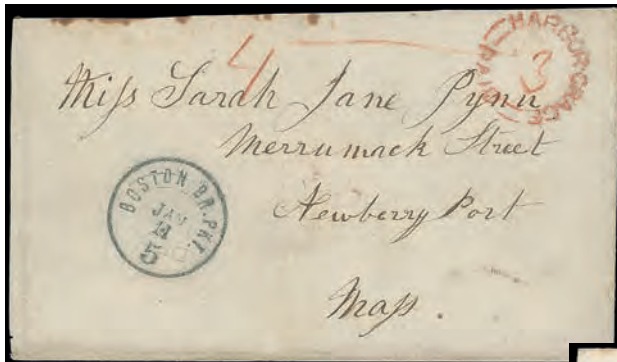 HARBOR GRACE
PAID
3
4
Miſs Sarah Jane Pynn
Merrumack Street
Newberry Port
Maſs.
BOSTON BR. PKT.
JAN
11
5